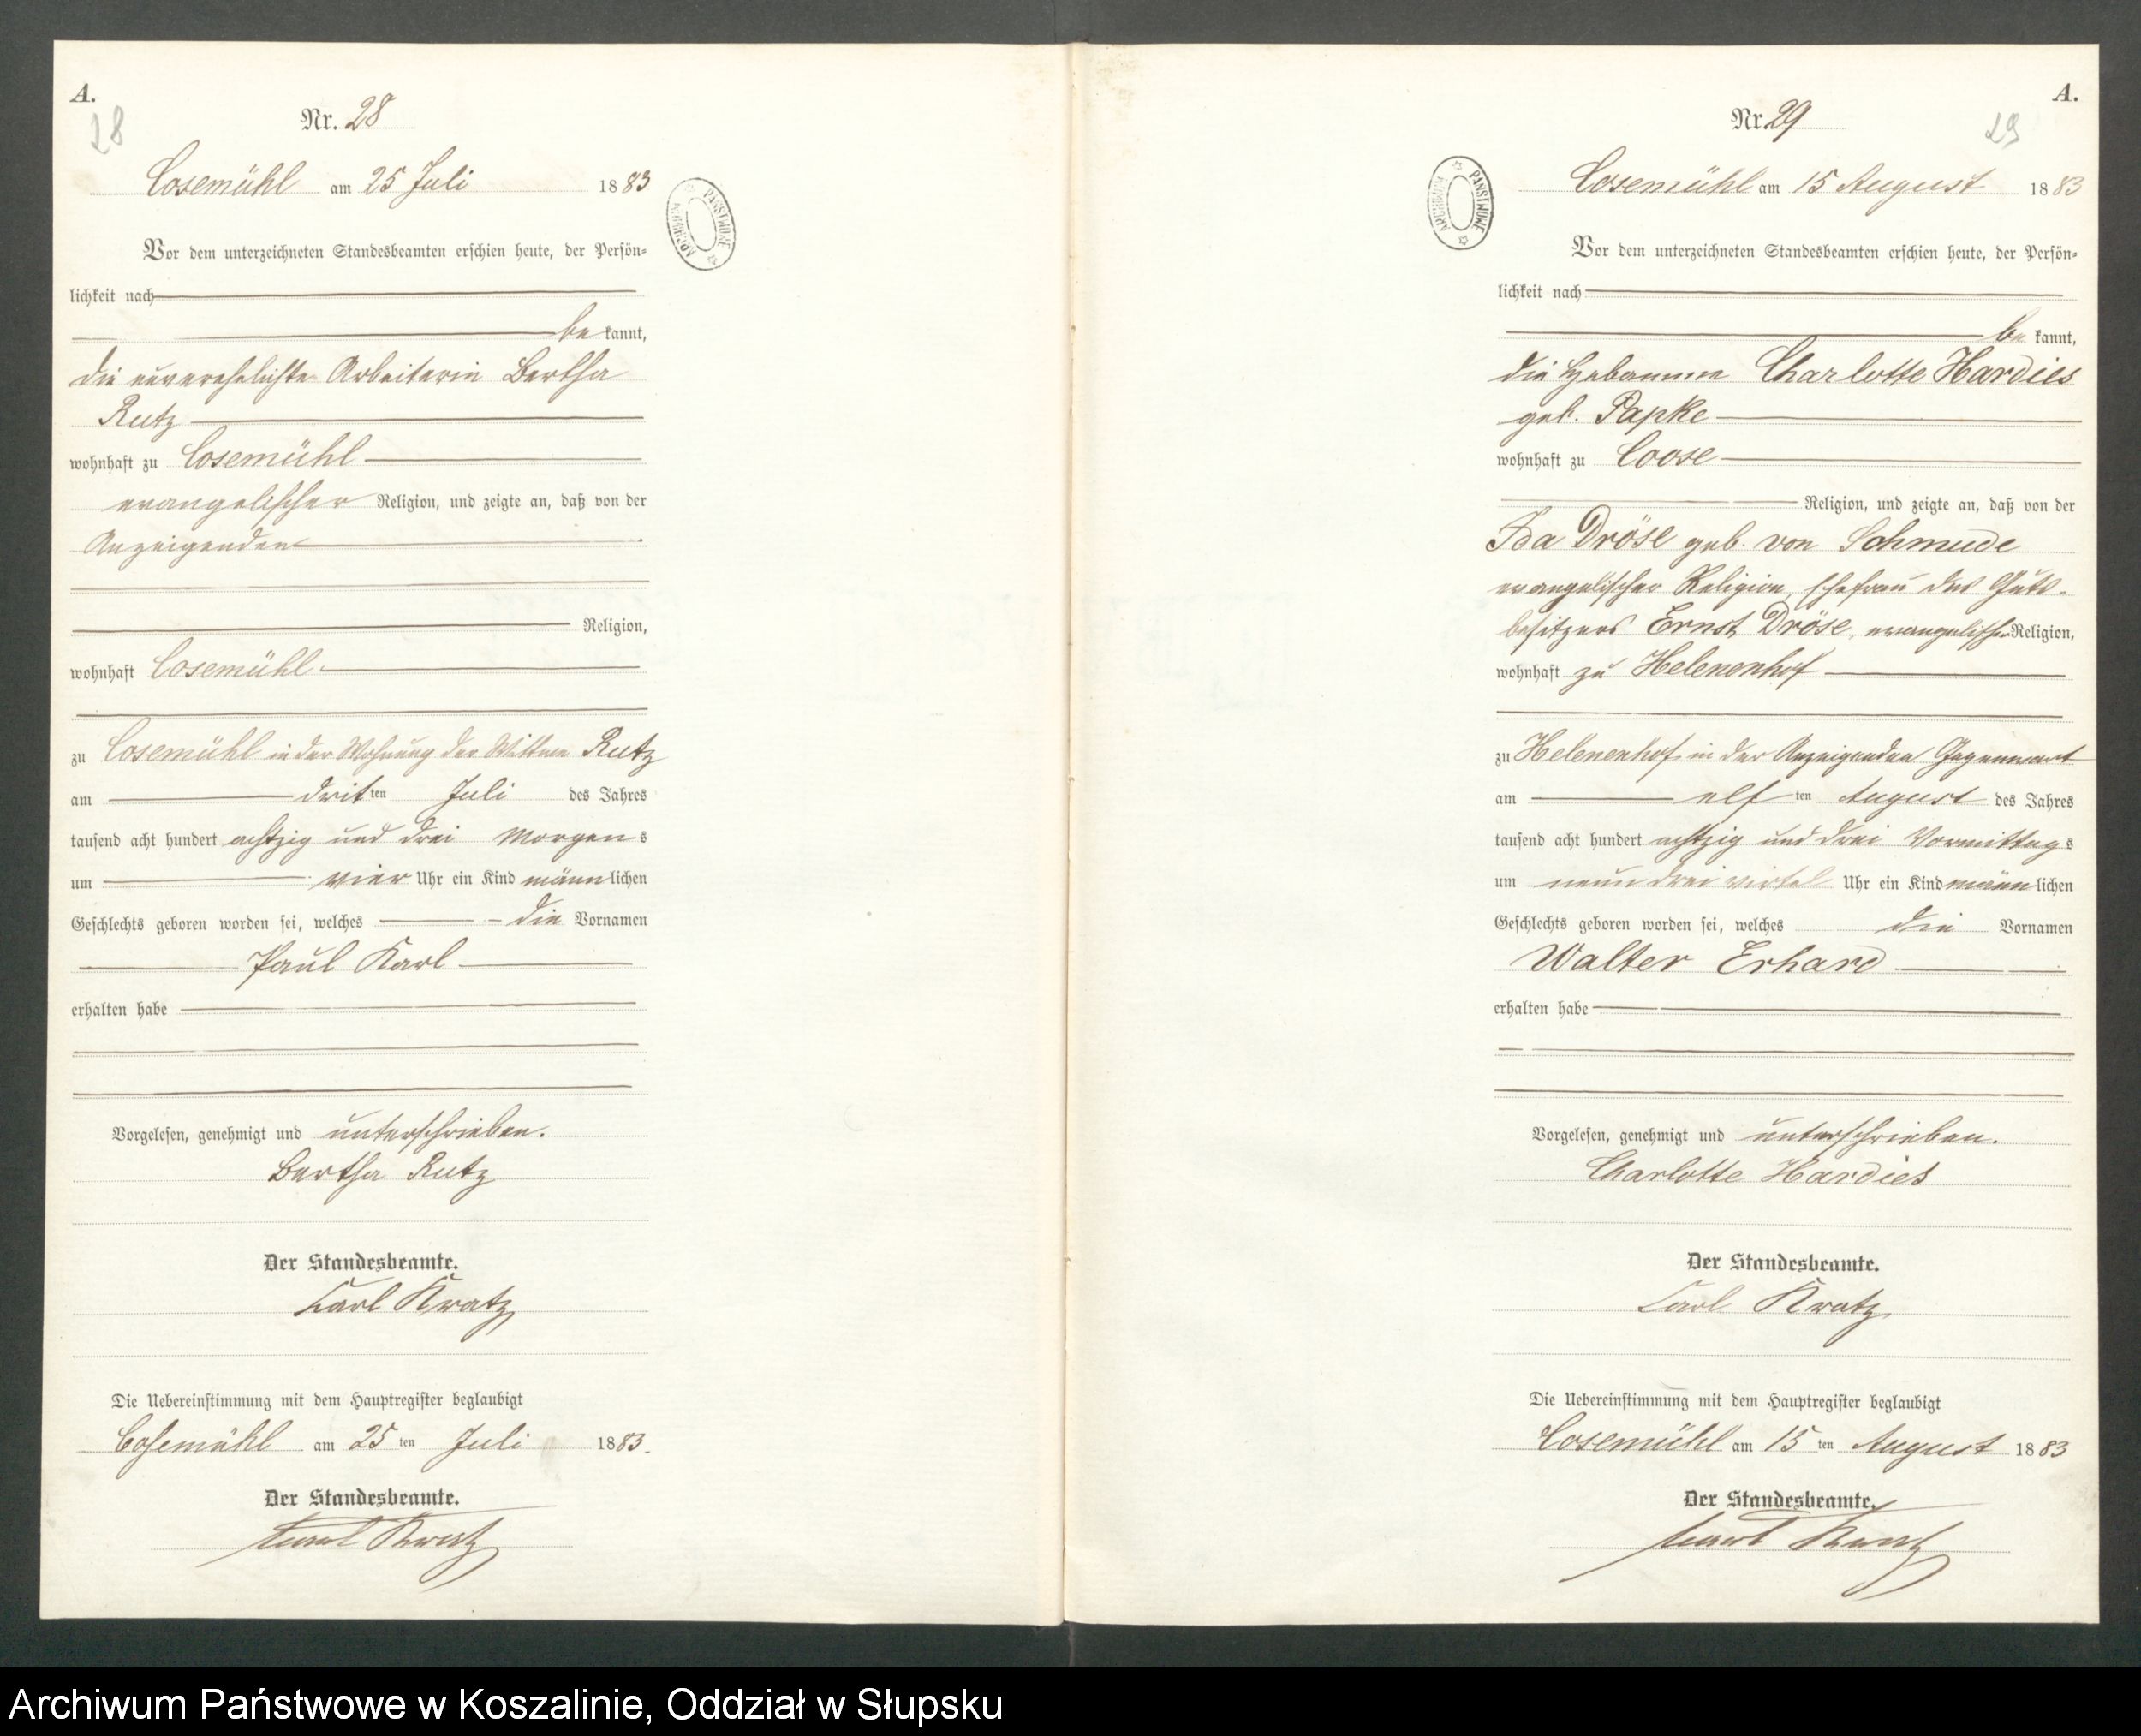 A.
28
Nr. 28
Cosemühl am 25 Juli 1883
ARCHIWUM PAŃSTWOWE
Vor dem unterzeichneten Standesbeamten erschien heute, der Persön-
lichkeit nach
be kannt,
die unverehelichte Arbeiterin Bertha
Rutz
wohnhaft zu Cosemühl
evangelischer Religion, und zeigte an, daß von der
Anzeigenden
Religion,
wohnhaft Cosemühl
zu Cosemühl in der Wohnung der Wittwe Rutz
am dritten Juli des Jahres
tausend acht hundert achtzig und drei Morgens
um vier Uhr ein Kind männlichen
Geschlechts geboren worden sei, welches die Vornamen
Paul Karl
erhalten habe
Vorgelesen, genehmigt und unterschrieben.
Bertha Rutz
Der Standesbeamte.
Carl Kratz
Die Uebereinstimmung mit dem Hauptregister beglaubigt
Cosemühl am 25 ten Juli 1883.
Der Standesbeamte.
Carl Kratz
A.
29
Nr. 29
Cosemühl am 15 August 1883
ARCHIWUM PAŃSTWOWE
Vor dem unterzeichneten Standesbeamten erschien heute, der Persön-
lichkeit nach
be kannt,
die Hebamme Charlotte Hardies
geb. Papke
wohnhaft zu Coose
Religion, und zeigte an, daß von der
Ida Dröse geb. von Schmude
evangelischer Religion, Ehefrau des Guts-
besitzers Ernst Dröse, evangelischer Religion,
wohnhaft zu Helenenhof
zu Helenenhof in der Anzeigenden Gegenwart
am elf ten August des Jahres
tausend acht hundert achtzig und drei Vormittags
um neun drei virtel Uhr ein Kind männlichen
Geschlechts geboren worden sei, welches die Vornamen
Walter Erhard
erhalten habe
Vorgelesen, genehmigt und unterschrieben.
Charlotte Hardies
Der Standesbeamte.
Carl Kratz
Die Uebereinstimmung mit dem Hauptregister beglaubigt
Cosemühl am 15 ten August 1883
Der Standesbeamte.
Carl Kratz
Archiwum Państwowe w Koszalinie, Oddział w Słupsku